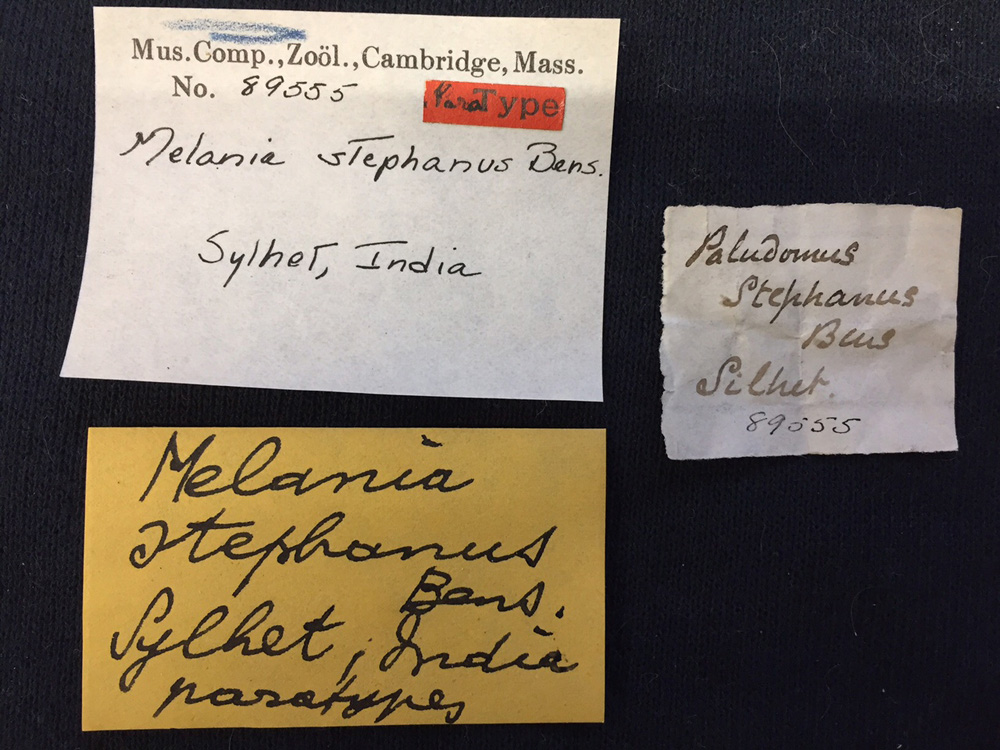 Mus.Comp., Zoöl., Cambridge, Mass.
No. 89555
ParaType
Melania stephanus Bens.
Sylhet, India
Melania
stephanus
Bens.
Sylhet, India
paratypes
Paludomus
Stephanus
Bens
Silhet.
89555